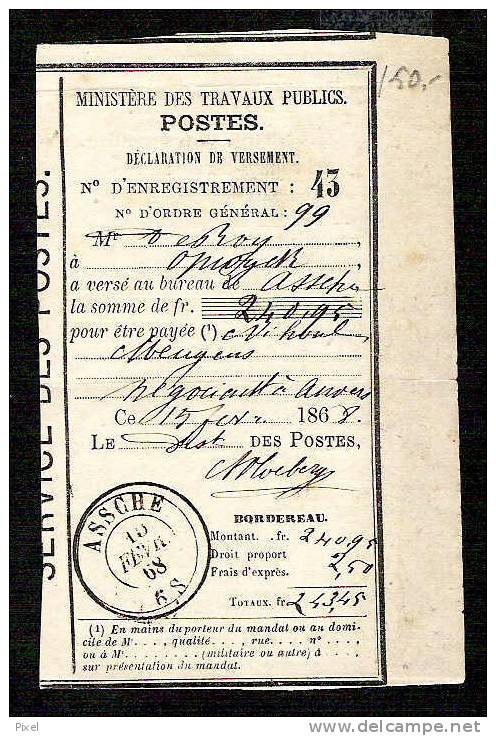 150.-
MINISTÈRE DES TRAVAUX PUBLICS.
POSTES.
DÉCLARATION DE VERSEMENT.
N° D'ENREGISTREMENT : 43
N° D'ORDRE GÉNÉRAL : 99
Mr De Roy,
à
a versé au bureau de Assche
la somme de fr. 240,95
pour être payée (1)
négociant à Anvers
Ce 15 fevr 1868.
LE DES POSTES,
SERVICE DES POSTES.
ASSCHE
15
FÉVR
68
6 S
BORDEREAU.
Montant. .fr. 240,95
Droit proport
Frais d'exprès. 2,50
TOTAUX. fr 243,45
(1) En mains du porteur du mandat ou au domi-
cile de Mr. . . ., qualité. . . , rue. . . . n° . . . .
ou à Mr. . . . . . . . (militaire ou autre) à . . .
sur présentation du mandat.
Pixel
www.delcampe.net